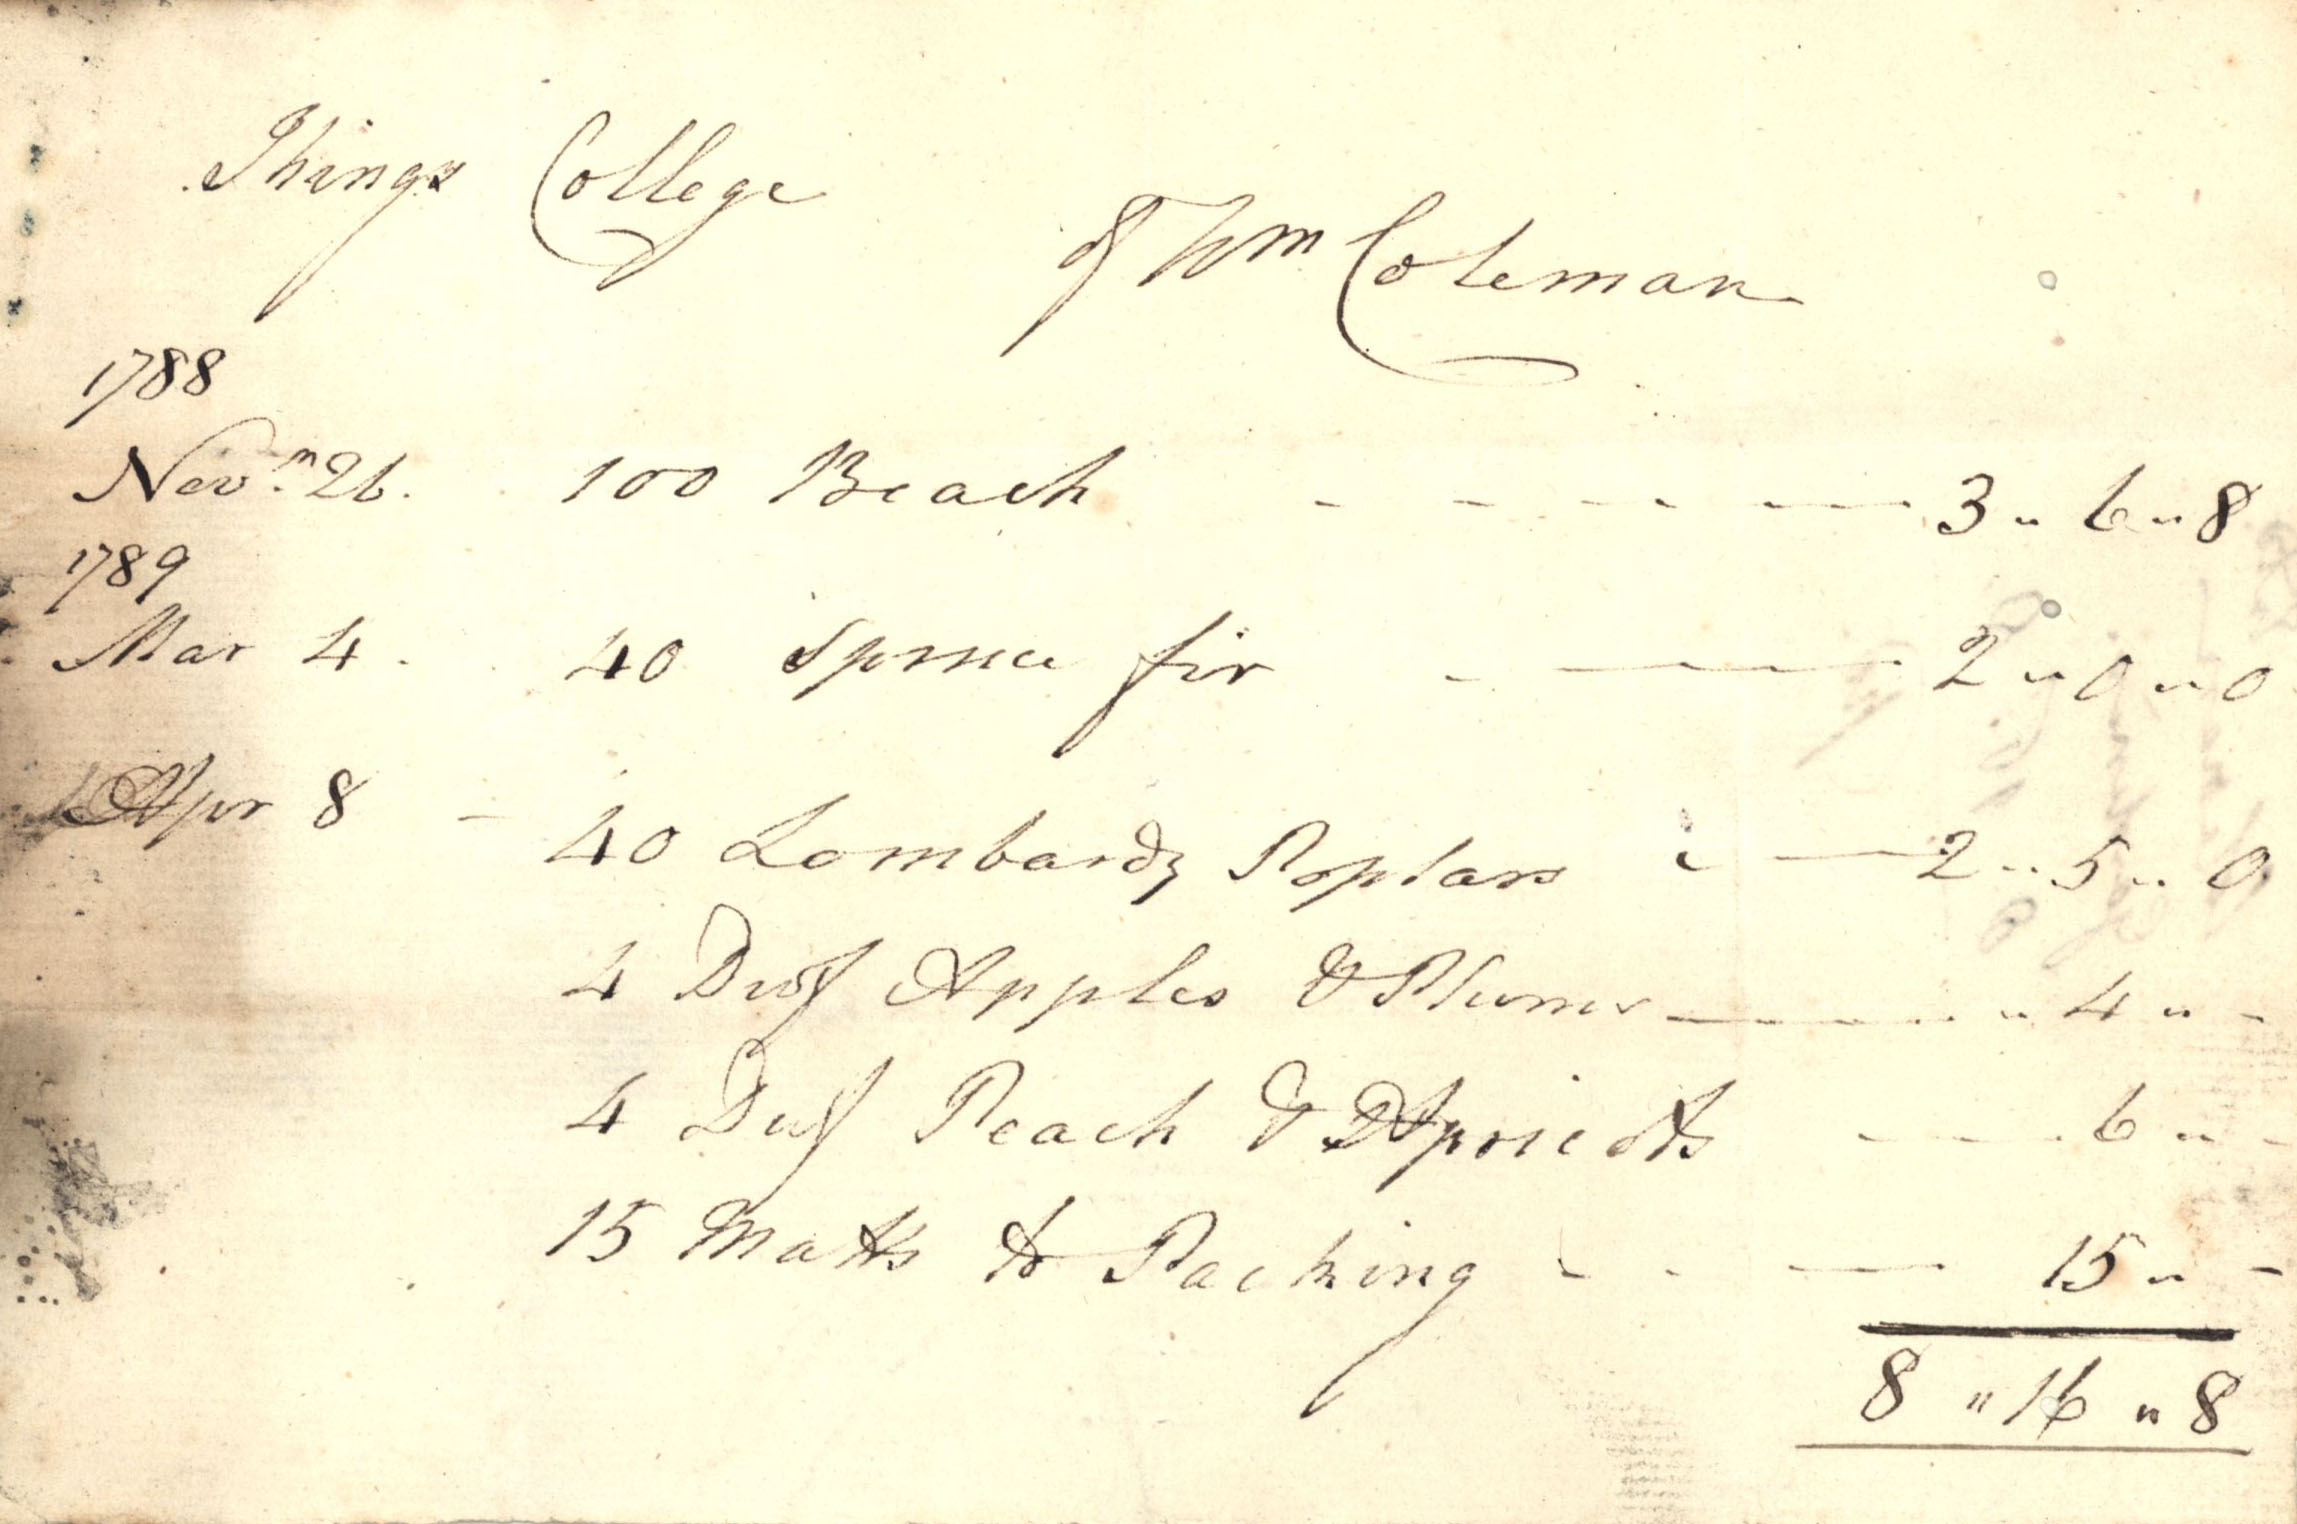 Kings College
of Wm Coleman
1788
Novm. 26. 100 Beach - - - - 3 " 6 " 8
1789
Mar 4. 40 Spruce fir - - 2 " 0 " 0
Apr 8 - 40 Lombardy Poplars - 2 " 5 " 0
4 Dwf Apples & Plums - " 4 " -
4 Dwf Peach & Apricots - - - 6 " -
15 Matts & Packing - - - 15 " -
8 " 16 " 8